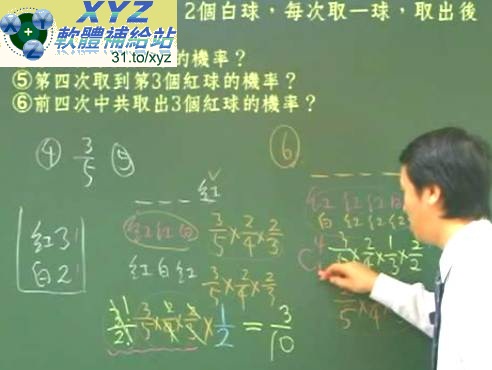 XYZ
軟體補給站
31.to/xyz
2個白球，每次取一球，取出後
的機率？
⑤第四次取到第3個紅球的機率？
⑥前四次中共取出3個紅球的機率？
④ 3/5 ⑤
⑥
_ _ _ 紅
紅3
白2
紅紅白 3/5×2/4×2/3
紅白紅 3/5×2/4×2/3
3/5×2/4×2/3×1/2=3/10
紅紅紅白
白紅紅紅
3/5×2/4×1/3×2/2